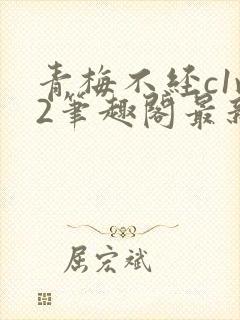 青梅不经c1v
2笔趣阁最新
屈宏斌